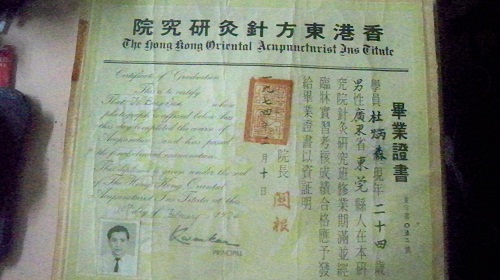 院究研灸針方東港香
The Hong Kong Oriental Acupuncturist Ins Titute
畢業證書
學員杜炳森現年二十四歲
男性廣東省東莞縣人在本研
究院針灸研究班修業期滿並經
臨牀實習考核成績合格應予發
給畢業證書以資証明
院長
一九七四年二月十日
Certificate of Graduation
This is to certify
That
whose
photograph is affixed below has
this day completed the course of
Acupuncture and has passed
examination
Given under the seal
of The Hong Kong Oriental
Acupuncturist Ins Titute at this
PRINCIPAL